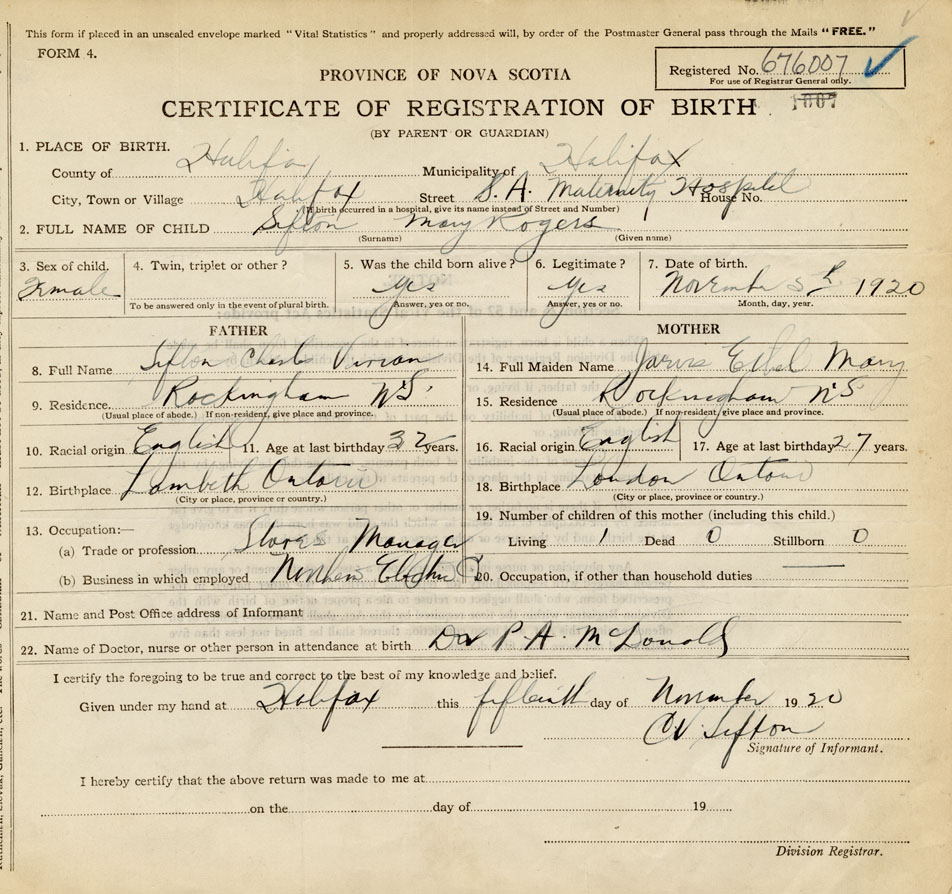 This form if placed in an unsealed envelope marked "Vital Statistics" and properly addressed will, by order of the Postmaster General pass through the Mails "FREE."
FORM 4.
PROVINCE OF NOVA SCOTIA
Registered No. 676007
For use of Registrar General only.
1007
CERTIFICATE OF REGISTRATION OF BIRTH
(BY PARENT OR GUARDIAN)
1. PLACE OF BIRTH.
County of Halifax Municipality of Halifax
City, Town or Village Halifax Street S. A. Maternity Hospital House No.
(If birth occurred in a hospital, give its name instead of Street and Number)
2. FULL NAME OF CHILD Sifton Mary Rogers
(Surname) (Given name)
3. Sex of child. 4. Twin, triplet or other? 5. Was the child born alive? 6. Legitimate? 7. Date of birth.
Female yes yes November 5th 1920
To be answered only in the event of plural birth. Answer, yes or no. Answer, yes or no. Month, day, year.
FATHER MOTHER
8. Full Name Sifton Charles Vivian 14. Full Maiden Name Jarvis Ethel Mary
9. Residence Rockingham N.S. 15. Residence Rockingham NS
(Usual place of abode.) If non-resident, give place and province. (Usual place of abode.) If non-resident, give place and province.
10. Racial origin English 11. Age at last birthday 32 years. 16. Racial origin English 17. Age at last birthday 27 years.
12. Birthplace Lambeth Ontario 18. Birthplace London Ontario
(City or place, province or country.) (City or place, province or country.)
13. Occupation:— 19. Number of children of this mother (including this child.)
(a) Trade or profession Stores Manager Living 1 Dead 0 Stillborn 0
(b) Business in which employed Northern 20. Occupation, if other than household duties
21. Name and Post Office address of Informant
22. Name of Doctor, nurse or other person in attendance at birth Dr P. A. McDonald
I certify the foregoing to be true and correct to the best of my knowledge and belief.
Given under my hand at Halifax this fifteenth day of November 1920
CV Sifton
Signature of Informant.
I hereby certify that the above return was made to me at
on the day of 19
Division Registrar.